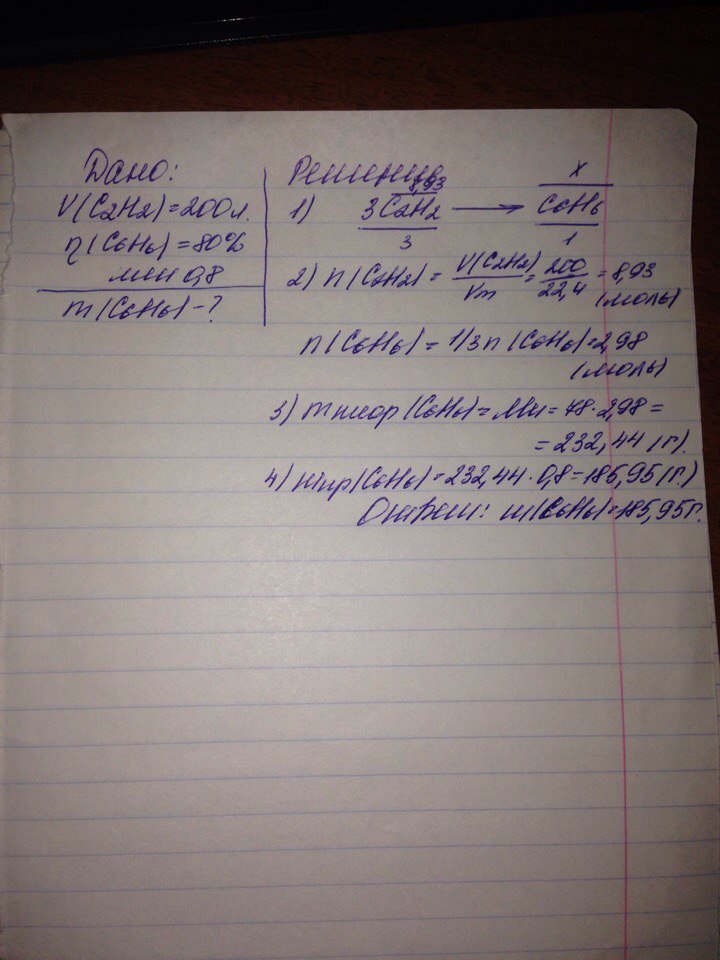 Дано:
V(C2H2)=200л.
η(C6H6)=80%
или 0,8
m(C6H6)-?
Решение
8,93 x
1) 3C2H2 → C6H6
3 1
2) n(C2H2) = V(C2H2)/Vm = 200/22,4 = 8,93
(моль)
n(C6H6) = 1/3n(C6H6)=2,98
(моль)
3) mтеор(C6H6)= Mn = 78·2,98 =
= 232,44 (г).
4) mпр(C6H6)=232,44·0,8=185,95(г)
Ответ: m(C6H6)=185,95г.